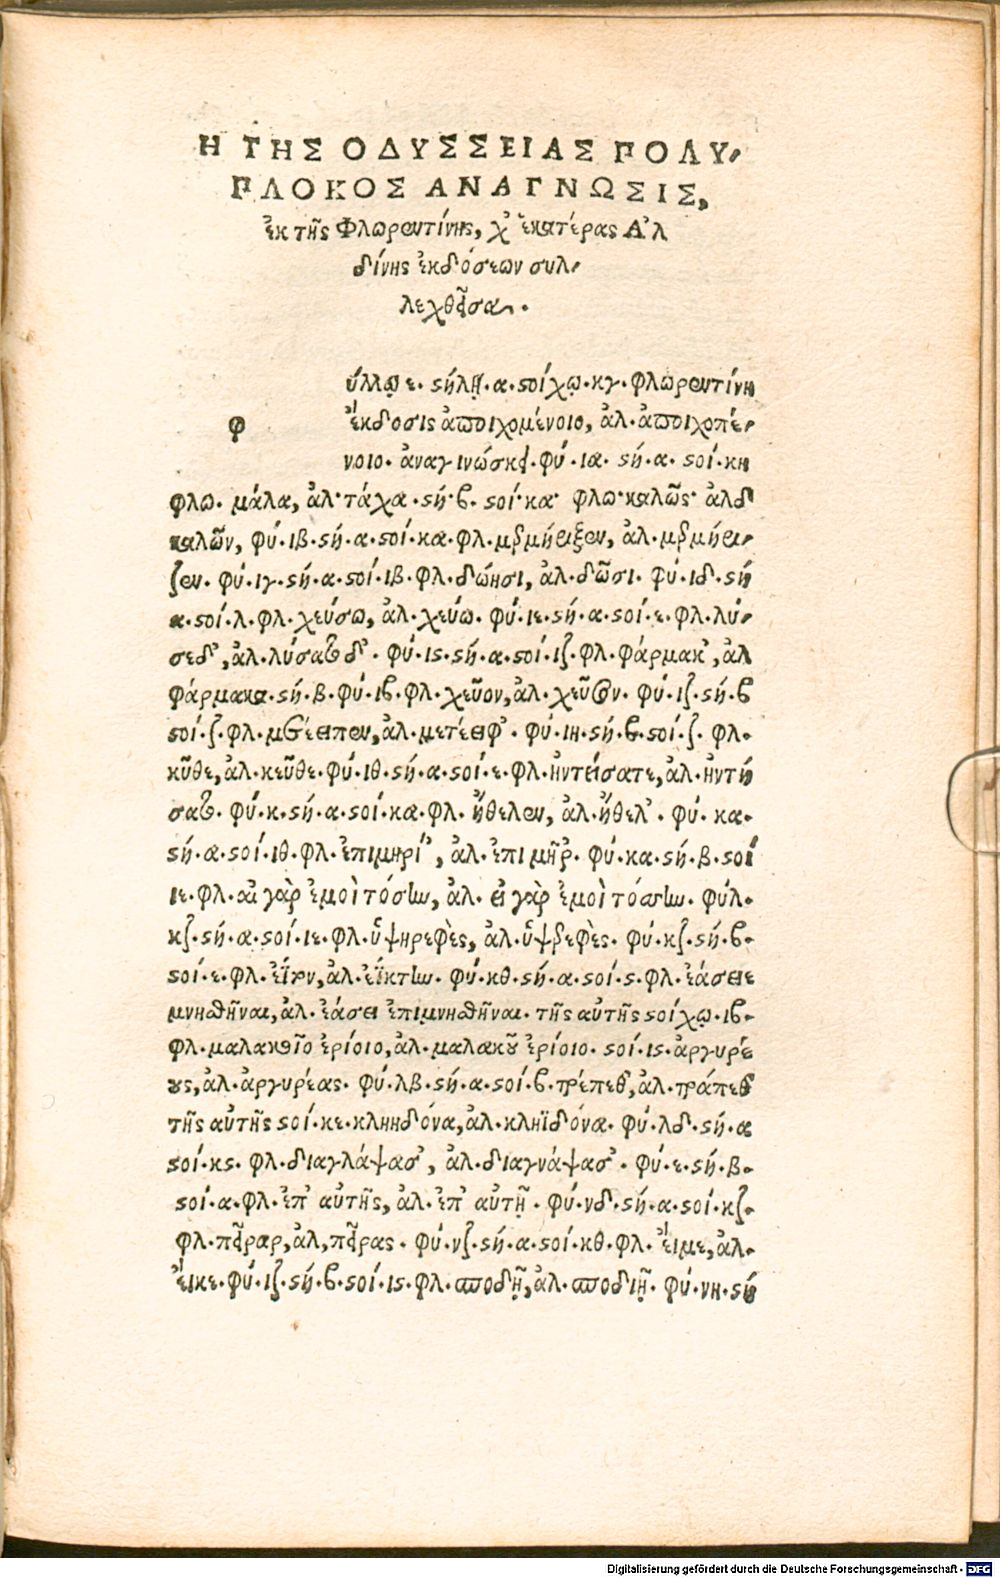 Η ΤΗΣ ΟΔΥΣΣΕΙΑΣ ΠΟΛΥ-
ΠΛΟΚΟΣ ΑΝΑΓΝΩΣΙΣ,
ἐκ τῆς Φλωρεντίνης, καὶ ἑκατέρας Ἀλ
δίνης ἐκδόσεων συλ-
λεχθεῖσα.
φ
ύλλῳ ε. σήλῃ. α. στίχῳ. κγ. φλωρεντίνη
ἔκδοσις ἀποιχομένοιο, ἀλ. ἀποιχοπέρ-
νοιο. ἀναγινώσκει. φύ. ια. σή. α. στί. κη
φλω. μάλα, ἀλ. τάχα. σή. β. στί. κα. φλω. καλῶς. ἀλδ
καλῶν, φύ. ιβ. σή. α. στί. κα. φλ. μερμήριξεν, ἀλ. μερμήρι-
ζεν. φύ. ιγ. σή. α. στί. ιβ. φλ. δώησι, ἀλ. δῶσι. φύ. ιδ. σή
α. στί. λ. φλ. χεύσω, ἀλ. χεύω. φύ. ιε. σή. α. στί. ε. φλ. λύ-
σεδ', ἀλ. λύσατο δ'. φύ. ις. σή. α. στί. ιζ. φλ. φάρμακ', ἀλ
φάρμακα. σή. β. φύ. ιβ. φλ. χεῦον, ἀλ. χεῦον. φύ. ιζ. σή. β
στί. ζ. φλ. μετέειπεν, ἀλ. μετέειφ'. φύ. ιη. σή. β. στί. ζ. φλ.
κῦθε, ἀλ. κεῦθε. φύ. ιθ. σή. α. στί. ε. φλ. ἠντείσατε, ἀλ. ἠντή
σατο. φύ. κ. σή. α. στί. κα. φλ. ἤθελεν, ἀλ. ἤθελ'. φύ. κα.
σή. α. στί. ιθ. φλ. ἐπιμηρί', ἀλ. ἐπὶ μῆρ'. φύ. κα. σή. β. στί
ιε. φλ. αἲ γὰρ ἐμοὶ τόσην, ἀλ. εἰ γὰρ ἐμοὶ τόσσην. φύλ.
κζ. σή. α. στί. ιε. φλ. ὑψηρεφὲς, ἀλ. ὑψερεφὲς. φύ. κζ. σή. β.
στί. ε. φλ. ἐΐκτον, ἀλ. ἐΐκτην. φύ. κθ. σή. α. στί. ς. φλ. ἐάσειε
μνησθῆναι, ἀλ. ἐάσει ἐπιμνησθῆναι. τῆς αὐτῆς στίχῳ. ιβ.
φλ. μαλακοῖο ἐρίοιο, ἀλ. μαλακοῦ ἐρίοιο. στί. ις. ἀργυρέ
ους, ἀλ. ἀργυρέας. φύ. λβ. σή. α. στί. β. τρέπετο, ἀλ. τράπετο
τῆς αὐτῆς στί. κε. κληηδόνα, ἀλ. κληϊδόνα. φύ. λδ. σή. α
στί. κς. φλ. διαγλάψασ', ἀλ. διαγνάψασ'. φύ. ε. σή. β.
στί. α. φλ. ἐπ' αὐτῆς, ἀλ. ἐπ' αὐτῇ. φύ. νδ. σή. α. στί. κζ.
φλ. πεῖραρ, ἀλ, πεῖρας. φύ. νζ. σή. α. στί. κθ. φλ. εἷμε, ἀλ.
εἷκε. φύ. ιζ. σή. β. στί. ις. φλ. σποδῇ, ἀλ. σποδιῇ. φύ. νη. σή
Digitalisierung gefördert durch die Deutsche Forschungsgemeinschaft - DFG